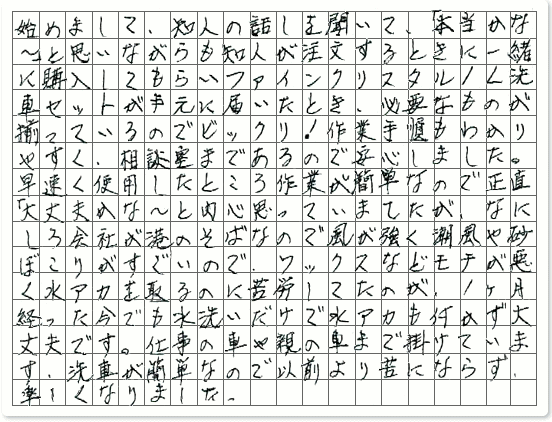 始めまして、知人の話しを聞いて、「本当かな
～」と思いながらも知人が注文するときに一緒
に購入してもらいファインクリスタル/ム洗
車セットが手元に届いたとき、必要なものが
揃っているのでビックリ！作業手順もわかり
やすく、相談室まであるので安心しました。
早速く使用したところ作業が簡単なので正直
「大丈夫かな～と内心思っていましてたが、なに
しろ会社が港のそばなので風が強く潮風や砂
ぼこりがすごいので、ワックスなどモチが悪
く水アカを取るのに苦労してたのが、1ヶ月
経った今でも水洗いだけで水アカも付かず大
丈夫です。仕事の車や親の車まで掛けていま
す。洗車が簡単なので以前より苦にならず、
楽しくなりました。